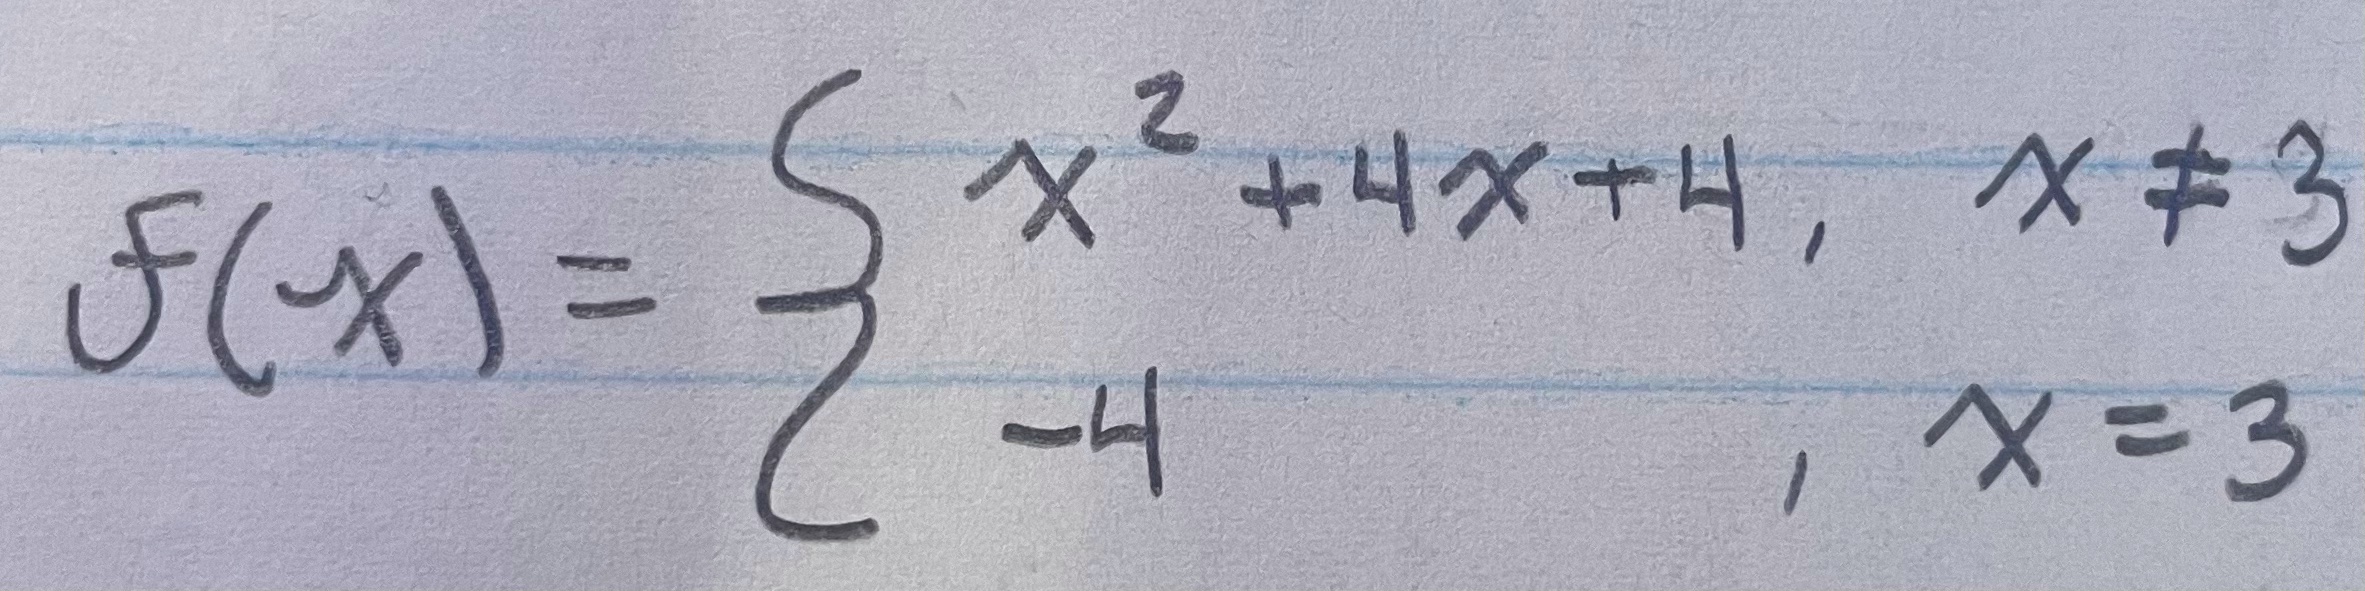 f(x) = { x² + 4x + 4, x ≠ 3
-4, x = 3